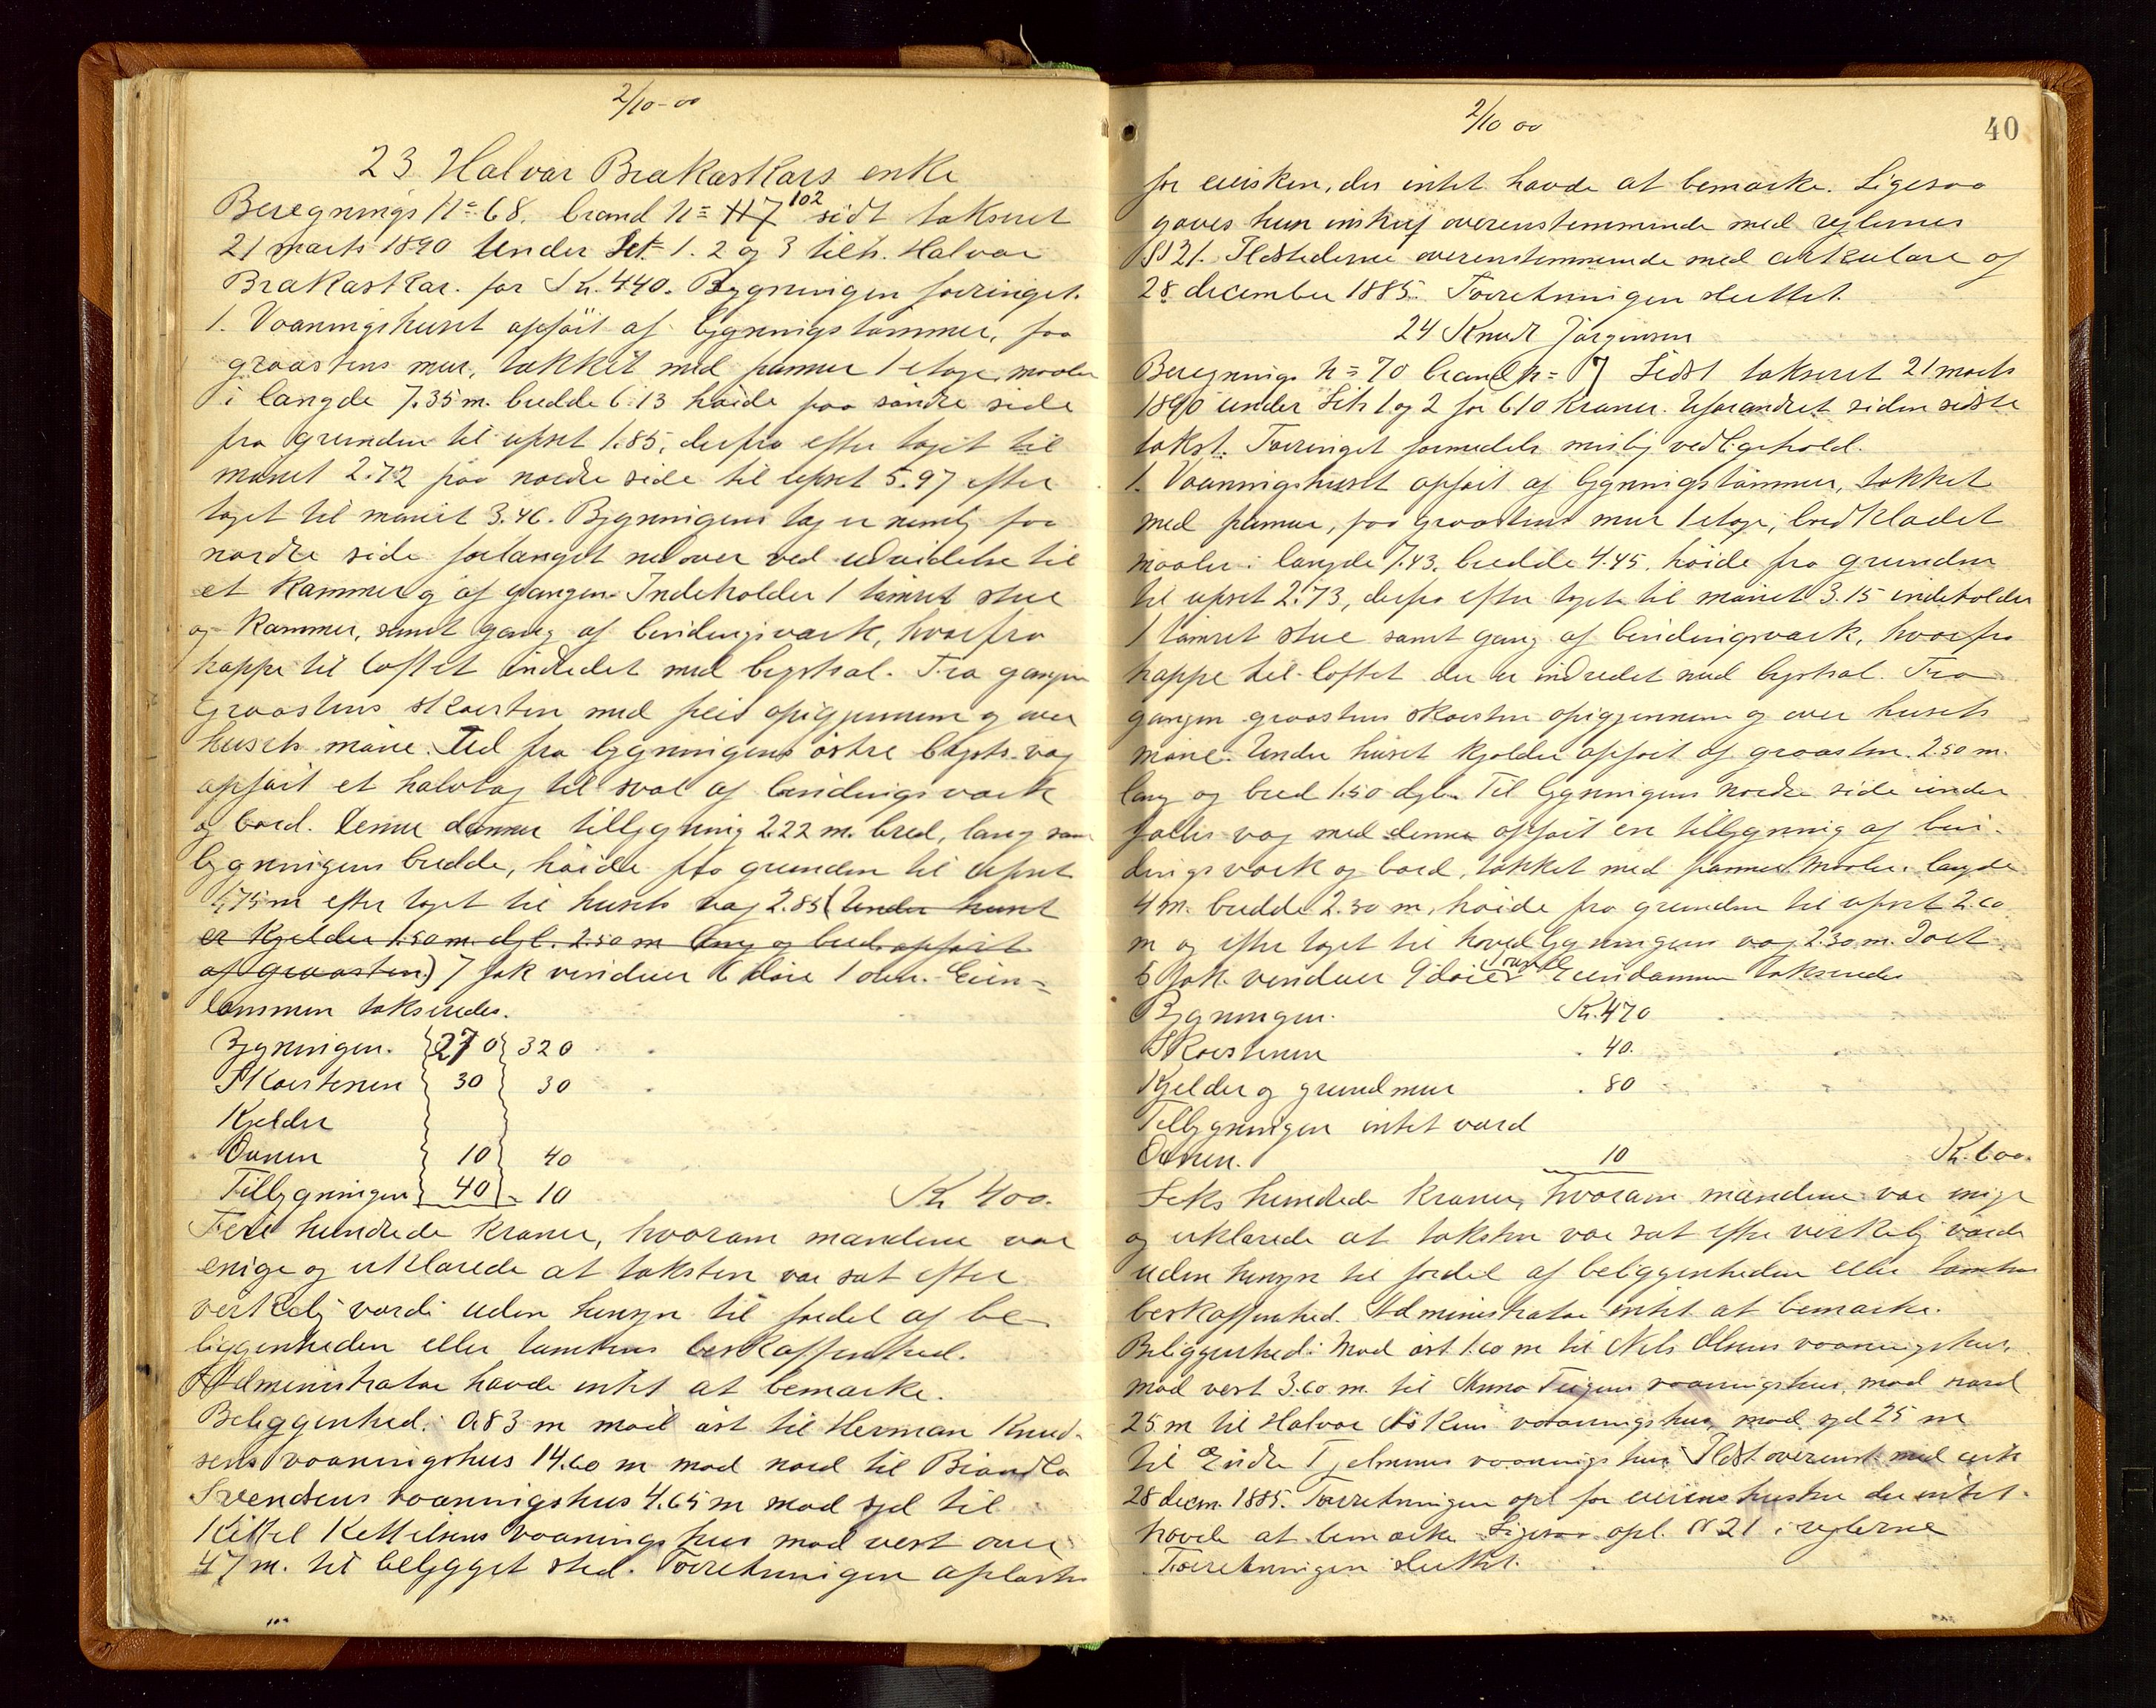 2/10-00
23 Halvor Brakaskars enke
Beregnings No 68. brand No 117 102 sidst takseret
21 marts 1890 Under Lit. 1. 2 og 3 tilh. Halvor
Brakaskar. for Kr. 440. Bygningen forringet.
1. Vaaningshuset opføit af bygningstømmer, paa
graastens mur, tækket med panner 1 etage, maaler
i længde 7.35 m. bredde 6.13 høide paa søndre side
fra grunden til opset 1.85, derfra efter taget til
mønet 2.72 paa nordre side til opset 5.97 efter
taget til mønet 3.46. Bygningens tag er nemlig paa
nordre side forlænget nedover ved udvidelse til
et kammer og af gangen. Indeholder 1 tømret stue
og kammer, samt gang af bindingsværk, hvorfra
trappe til loftet indredet med brystval. Fra gangen
graastens skorsten med peis opigjennem og over
husets møne. Ud fra bygningens østre brystvæg
opføit et halvtag til sval af bindingsværk
og bord. Denne danner tilbygning 2.22 m. bred, lang som
bygningens bredde, høide fra grunden til opset
1,75 m efter taget til husets væg 2.85 (Under huset
er kjelder 1.50 m. dyb. 2.50 m lang og bred opført
af graasten.) 7 fak vinduer 6 døre 1 ovn. Eien=
dommen takseredes.
Bygningen. 270 320
Skorstenen 30 30
Kjelder
Ovnen 10 40
Tilbygningen 40 10 Kr 400.
Fire hundrede kroner, hvorom mændene var
enige og erklærede at taksten var sat efter
verkelig værdi uden hensyn til fordel af be-
liggenheden eller tomtens beskaffenhed.
Administrator havde intet at bemærke.
Beliggenhed: 0.83 m mod øst til Herman Knud-
sens vaaningshus 14.60 m mod nord til
Svendsens vaaningshus 4.65 m mod syd til
Kittel Kettilsens vaaningshus mod vest over
47 m. til bebygget sted. Forretningen oplæstes
2/10 00
40
for eiersken, der intet havde at bemærke. Ligesaa
gaves hun inskrif overenstemmende med reglernes
§ 21. Ildstederne overenstemmende med cirkulære af
28 december 1885. Forretningen sluttet.
24 Knud Jørgensen
Beregnings No 70 brand No 7 Sidst takseret 21 marts
1890 under Litr 1 og 2 for 610 kroner. Uforandret siden sidste
takst. Forringet formedels mislig vedligehold.
1. Vaaningshuset opføit af bygningstømmer, tækket
med panner, paa graastens mur 1 etage, bordklædet
maaler i længde 7.43. bredde 4.45, høide fra grunden
til opset 2.73, derfra efter taget til mønet 3.15 indeholder
1 tømret stue samt gang af bindingsværk, hvorfra
trappe til loftet der er indredet med brystval. Fra
gangen graastens skorsten opigjennem og over husets
møne. Under huset kjelder opføit af graasten 2.50 m.
lang og bred 1.50 dyb. Til bygningens nordre side under
fælles væg med denne opføit en tilbygning af bin-
dingsværk og bord, tækket med panner. Maaler i længde
4 m. bredde 2.30 m, høide fra grunden til opset 2.60
m og efter taget til hovedbygningens væg 2.30 m. Ialt
5 fak. vinduer 9 døre Eiendommen takseredes
Bygningen. Kr. 470
Skorstenen 40.
Kjelder og grundmur 80
Tilbygningen intet værd
Ovnen. 10 Kr. 600.
Seks hundrede kroner, hvorom mændene var enige
og erklærede at taksten var sat efter verkelig værdi
uden hensyn til fordel af beliggenheden eller tomtens
beskaffenhed. Administrator intet at bemærke.
Beliggenhed: Mod øst 1.60 m til Nils Olsens vaaningshus,
mod vest 3.60 m. til vaaningshus, mod nord
25 m til Halvor vaaningshus, mod syd 25 m
til Endre vaaningshus Ildst overenst med cirk
28 decm. 1885. Forretningen opl for eierens hustru der intet
havde at bemærke Ligesaa opl. § 21 i reglerne
Forretningen sluttet.